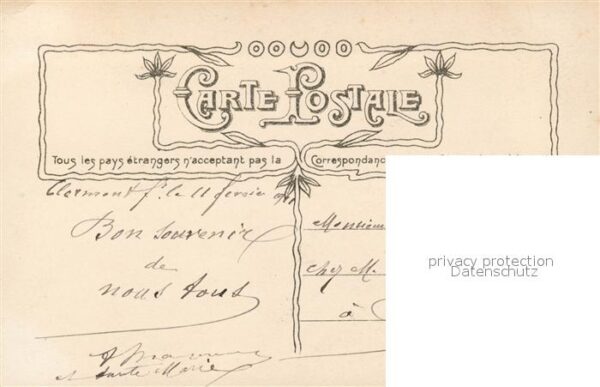 CARTE POSTALE
Tous les pays étrangers n'acceptant pas la Correspondanc
Clermont Fd le 11 fevrie
Bon souvenir
de
nous tous
et tante Marie
Monsieu
chez M.
à
privacy protection
Datenschutz